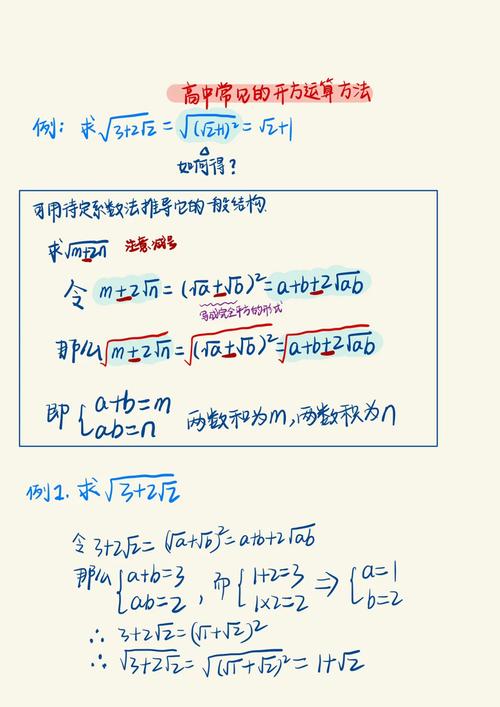 高中常见的开方运算方法
例: 求√(3+2√2) = √((√2+1)²) = √2+1
如何得?
可用待定系数法推导它的一般结构.
求√(m±2n) 注意:减号
令 m±2√n = (√a±√b)² = a+b±2√ab
写成完全平方的形式
那么√(m±2√n) = √((√a±√b)²) = √(a+b±2√ab)
即 { a+b=m
ab=n 两数和为m,两数积为n
例1. 求√(3+2√2)
令 3+2√2 = (√a+√b)² = a+b+2√ab
那么 { a+b=3 , 而 { 1+2=3 ⇒ { a=1
ab=2 1×2=2 b=2
∴ 3+2√2 = (√1+√2)²
∴ √(3+2√2) = √((√1+√2)²) = 1+√2